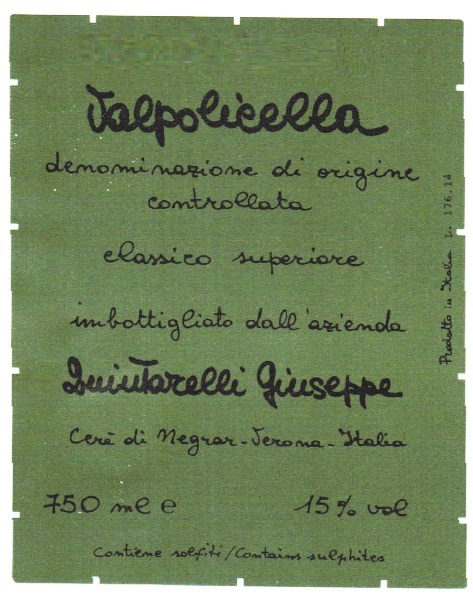 Valpolicella
denominazione di origine
controllata
classico superiore
imbottigliato dall'azienda
Quintarelli Giuseppe
Cerè di Negrar - Verona - Italia
750 ml e
15% vol
Contiene solfiti / Contains sulphites
Prodotto in Italia L. 176.14